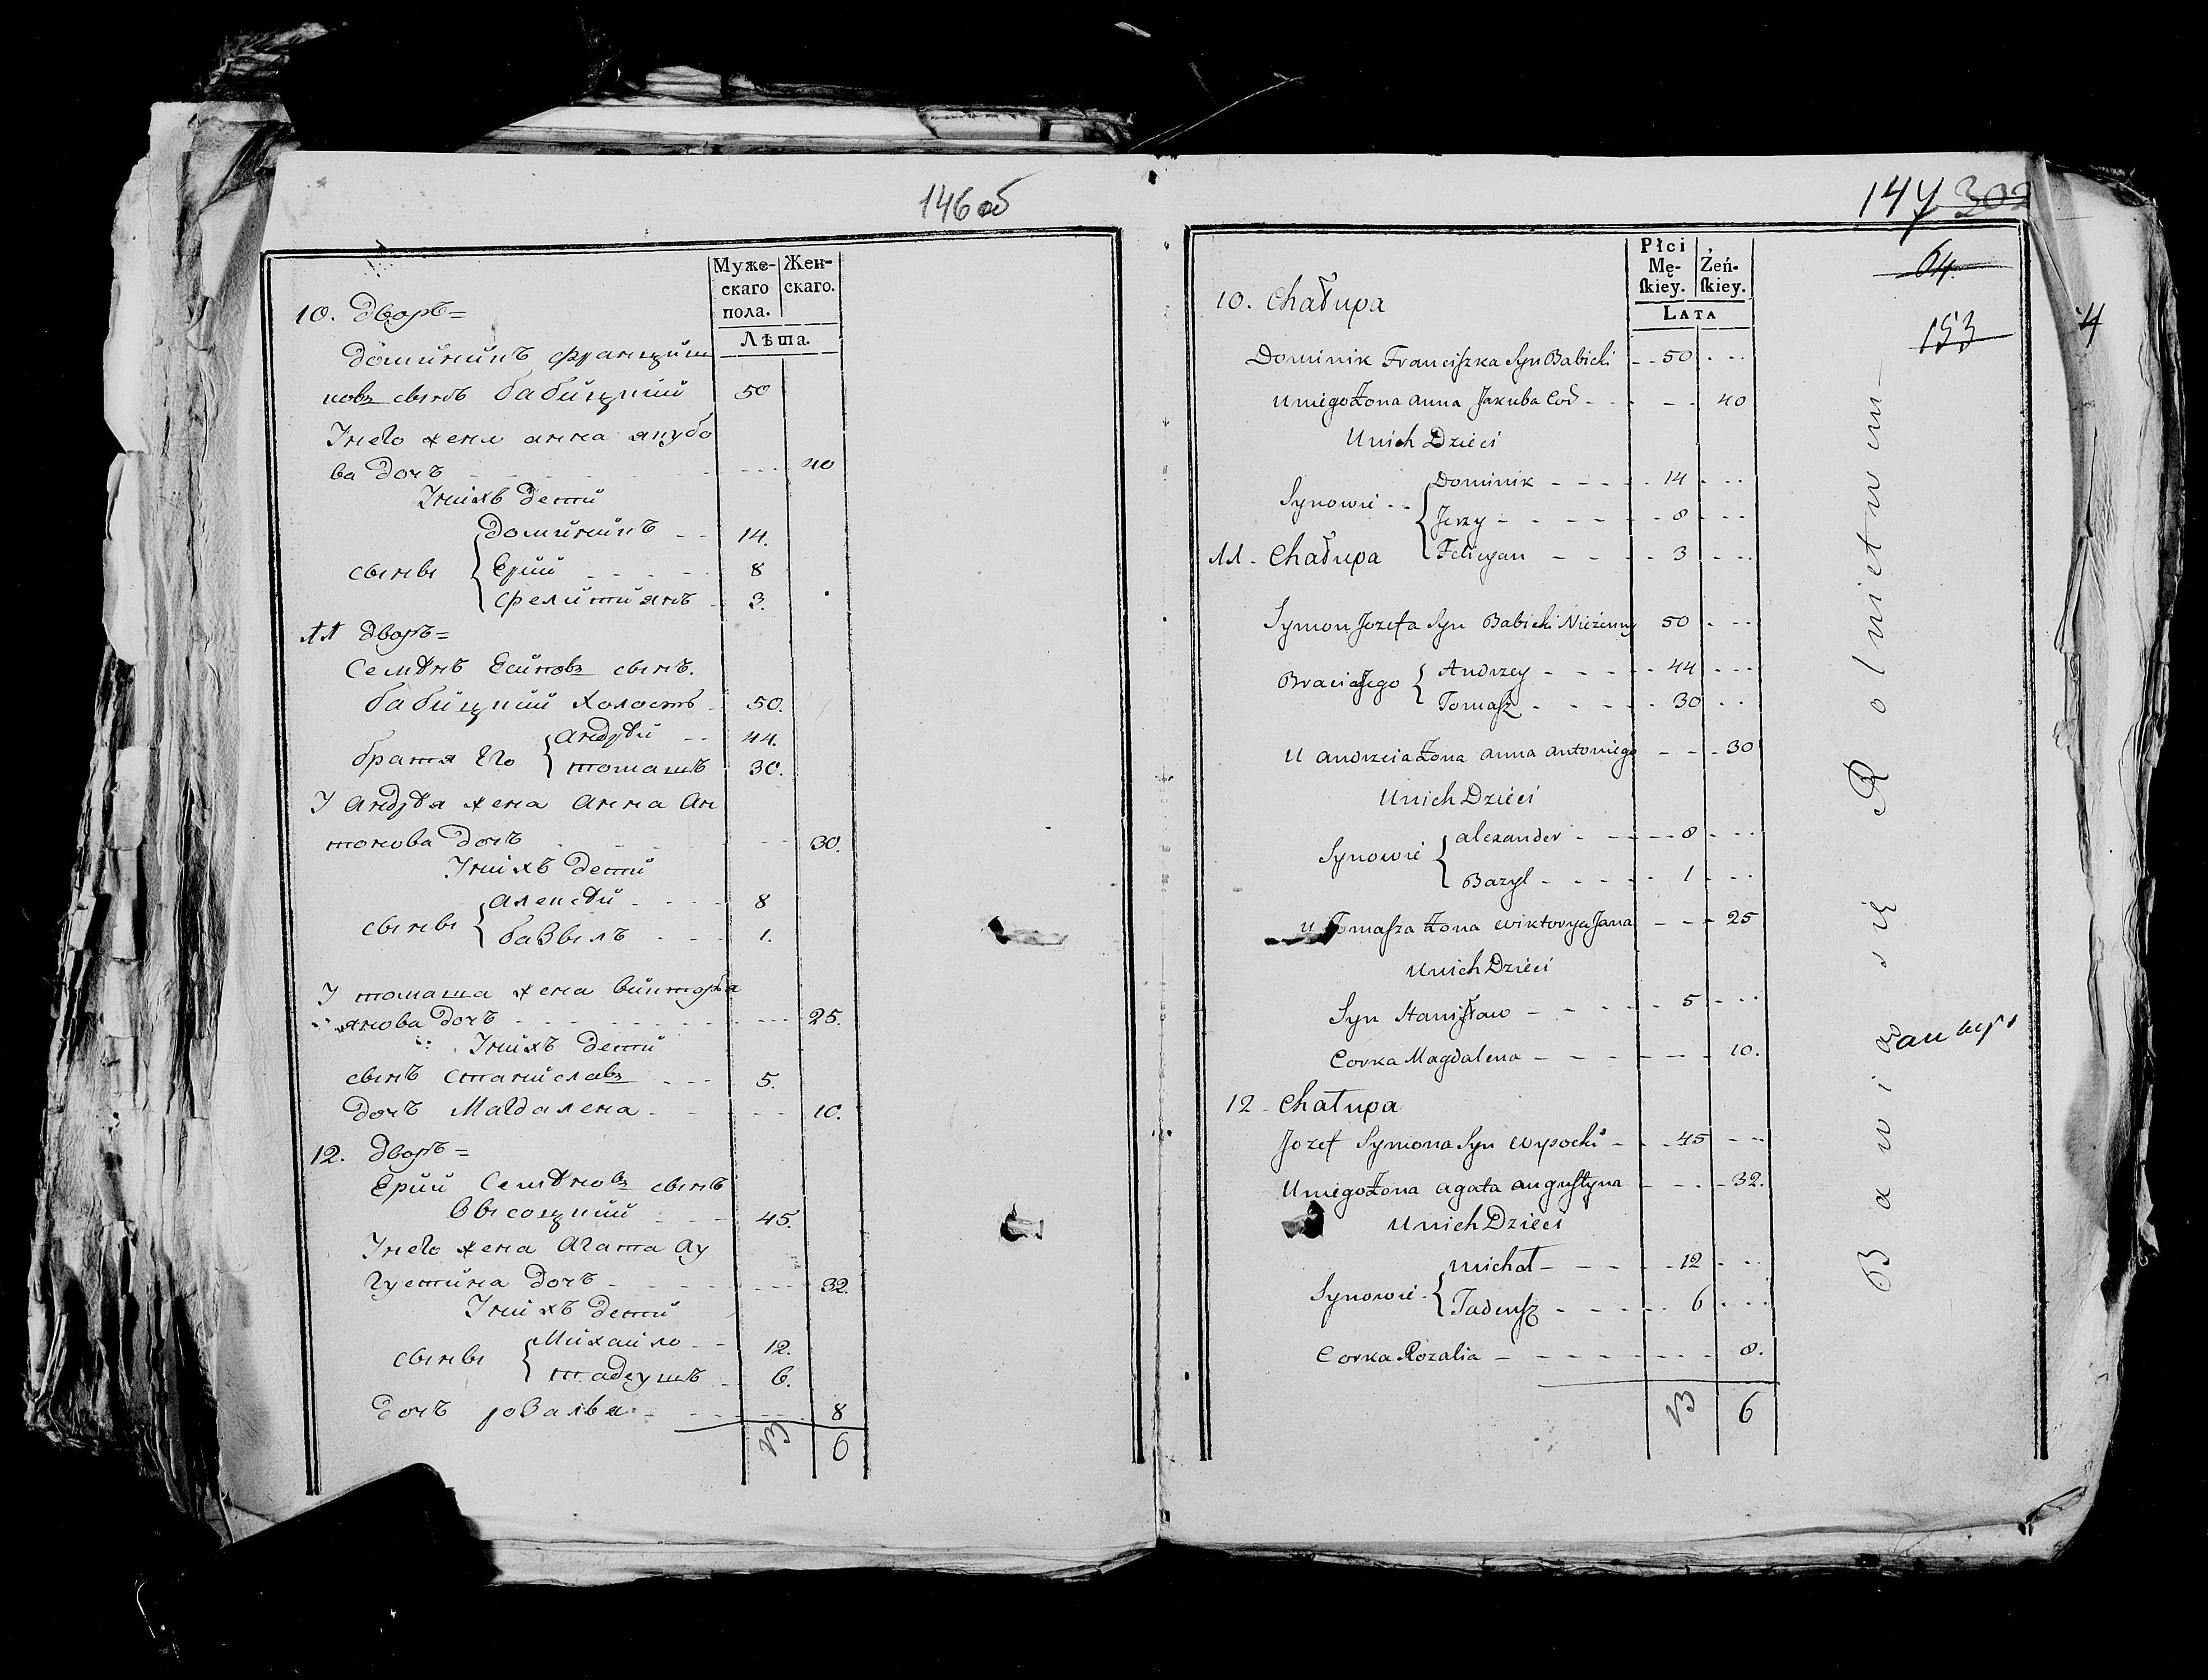 146 об
Муже- Жен-
скаго скаго.
пола.
Лѣта.
10. Дворъ =
Доминикъ Франциш
ковъ сынъ Бабицкий 50
У него жена анна якубо
ва Дочъ 40
У нихъ Дети
Доминикъ 14.
сыны Ерий 8
Фелитиянъ 3.
11 Дворъ =
Семѣнъ Есиповъ сынъ.
бабицкий холостъ 50.
андрѣй 44.
братя Его томашъ 30.
У андрѣя жена Анна Ан
тонова Дочъ 30.
У нихъ Дети
Алексѣй 8
сыны базылъ 1.
У томаша жена викторя
янова Дочъ 25.
У нихъ Дети
сынъ Станиславъ 5.
Дочъ Магдалена 10.
12. Дворъ =
Ерий Семѣновъ сынъ
Высоцкий 45.
У него жена Агата Ау
густина Дочъ 32.
У нихъ Дети
Михайло 12.
сыны тадеушъ 6.
Дочъ розалья 8
13 6
147 302
64.
153
4
Płci
Mę- Żeń-
skiey. skiey.
LATA
10. Chałupa
Dominik Franciszka Syn Babicki 50
U niego Żona anna Jakuba Cod 40
U nich Dzieci
Dominik 14
Synowie Jerzy 8
11. Chałupa Felicyan 3
Symon Jozefa Syn Babicki Nieżenny 50
Bracia Jego Andrzey 44
Tomasz 30
U andrzeia Żona anna antoniego 30
U nich Dzieci
Synowie alexander 8
Bazyl 1
U Tomasza Żona wiktorya Jana 25
U nich Dzieci
Syn Stanisław 5
Corka Magdalena 10.
12 Chałupa
Jozef Symona Syn wysocki 45
U niego Żona agata augustyna 32.
U nich Dzieci
Michał 12
Synowie Tadeusz 6
Corka Rozalia 8.
13 6
Bawią się Rolnictwem